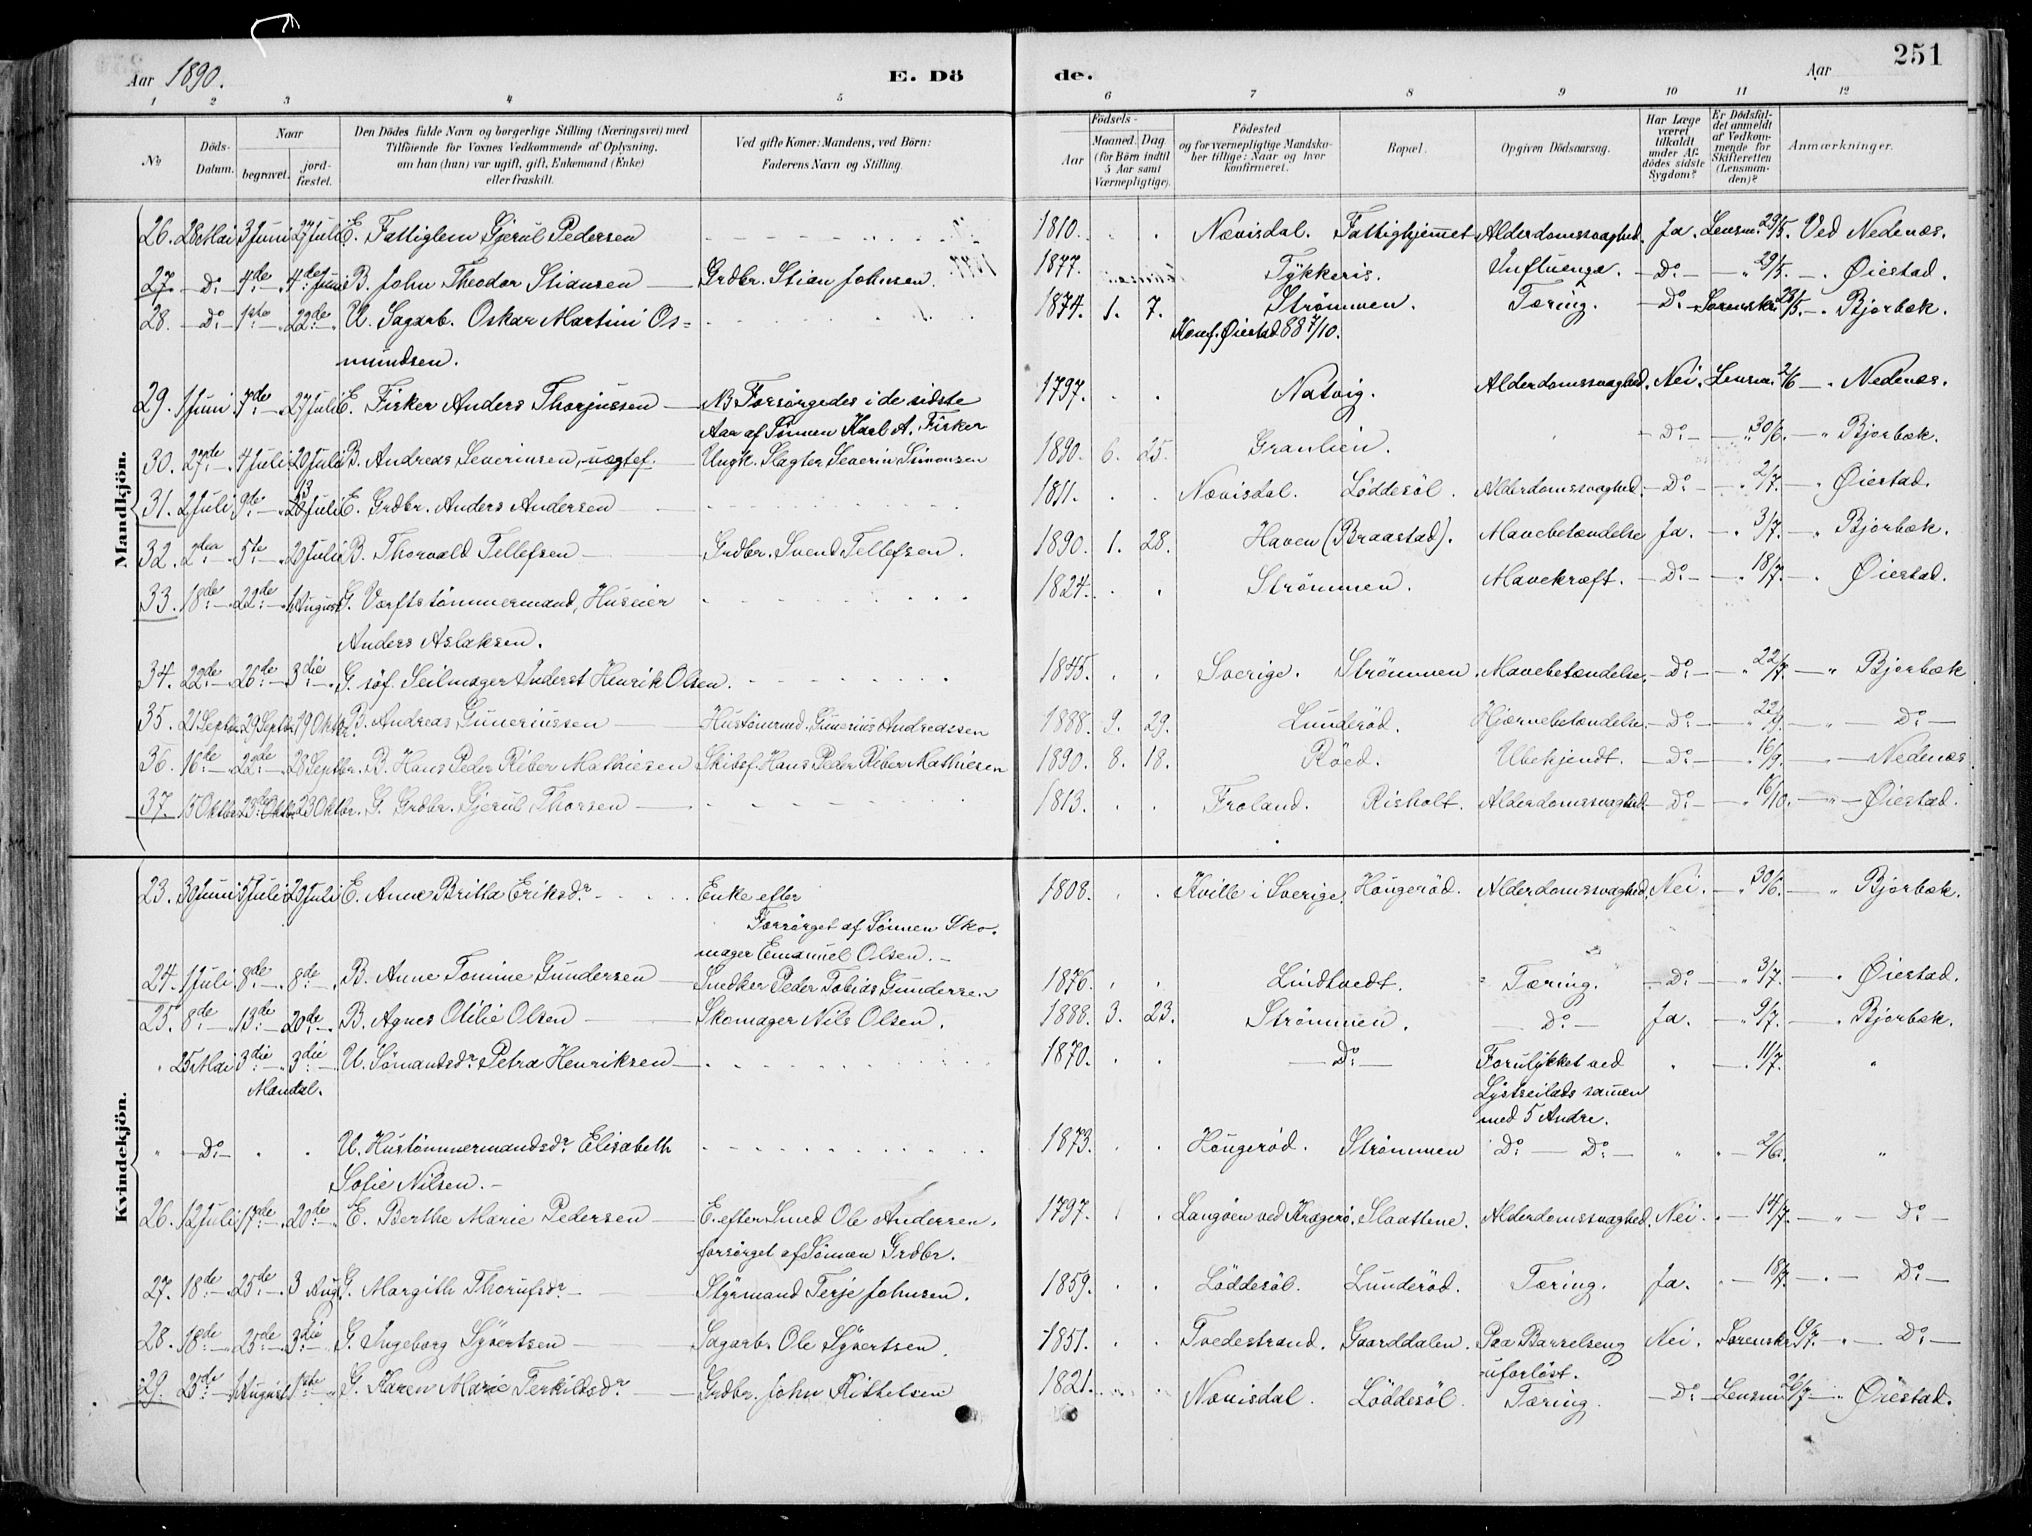 251
Aar 1890. E. Dö de. Aar
1 2 3 4 5 6 7 8 9 10 11 12
No
Döds-Datum.
Naar begravet. jordfæstet.
Den Dödes fulde Navn og borgerlige Stilling (Næringsvei) med Tilföiende for Voxnes Vedkommende af Oplysning, om han (hun) var ugift, gift, Enkemand (Enke) eller fraskilt.
Ved gifte Koner: Mandens, ved Börn: Faderens Navn og Stilling.
Födsels- Aar Maaned. Dag (for Börn indtil 5 Aar samt Værnepligtige).
Födested og for værnepligtige Mandskaber tillige: Naar og hvor konfirmeret.
Bopæl.
Opgiven Dödsaarsag.
Har Læge været tilkaldt under Afdödes sidste Sygdom?
Er Dödsfaldet anmeldt af Vedkommende for Skifteretten (Lensmanden)?
Anmærkninger.
Mandkjön.
26. 28 Mai 3 Juni 27 Juli E. Fattiglem Gjerul Pedersen 1810. Nævisdal. Fattighjemmet Alderdomssvaghed. Ja. Lensm. 29/5. Ved Nedenæs.
27. Do 4de 4de Juni B. John Theodor Stiansen Grdbr. Stian Johnsen. 1877. Tykkeris. Influenza. Do 29/5. Øiestad.
28. Do 1ste 22de U. Sagarb. Oskar Martini Os= 1874. 1. 7. Strømmen. Tæring. Do Sorenskr. 28/5. Bjorbæk.
mundsen. Konf. Øiestad 88 7/10.
29. 1 Juni 7de 27 Juli E. Fisker Anders Thorjussen NB Forsørgedes i de sidste 1797. Natvig. Alderdomssvaghed. Nei. Lensm. 2/6 Nedenæs.
Aar af Sønnen Karl A. Fisker
30. 29de 4 Juli 20 Juli B. Andreas Severinsen, uægtef. Ungk. Slagter Severin Simonsen 1890. 6. 25. Granlien. Do 30/6. Bjorbæk.
31. 2 Juli 9de 13 Juli E. Grdbr. Anders Andersen 1811. Nævisdal. Løddesøl. Alderdomssvaghed. Do 2/7. Øiestad.
32. 2den 5te 20 Juli B. Thorvald Tellefsen Grdbr. Svend Tellefsen. 1890. 1. 28. Haven (Braastad). Mavebetændelse Ja. 3/7. Bjorbæk.
33. 18de 22de 1 August G. Værftstømmermand, Huseier 1824. Strømmen. Mavekræft. Do 18/7. Øiestad.
Anders Aslaksen.
34. 22de 26de 3die G. søf. Seilmager Anderst Henrik Olsen. 1845. Sverige. Strømmen. Mavebetændelse. Do 22/7. Bjorbæk
35. 21 Septbr. 29 Septbr. 19 Oktbr. B. Andreas Guneriussen Hustømmd. Gunerius Andreassen 1888. 9. 29. Lunderød. Hjærnebetændelse. Do 22/9. Do
36. 16de 22de 28 Septbr. B. Hans Peder Riber Mathiesen Skibsf. Hans Peder Riber Mathiesen 1890. 8. 18. Røed. Ubekjendt. Do 16/9. Nedenæs
37. 15 Oktbr. 23de Oktbr. 23 Oktbr. G. Grdbr. Gjerul Thorsen 1813. Froland. Risholt. Alderdomssvaghed Do 16/10. Øiestad.
Kvindekjön.
23. 30 Juni 5 Juli 20 Juli E. Anne Britta Eriksdr. Enke efter 1808. Kville i Sverige. Hougerød. Alderdomssvaghed. Nei. 30/6. Bjorbæk.
Forsørget af Sønnen Sko-
mager Emanuel Olsen.
24. 1 Juli 8de 8de B. Anne Tomine Gundersen Snedker Peder Tobias Gundersen 1876. Lindtvedt. Tæring. Do 3/7. Øiestad.
25. 8de 13de 20de B. Agnes Otilie Olsen Skomager Nils Olsen. 1888. 3. 23. Strømmen. Do Ja. 9/7. Bjorbæk.
" 25 Mai 3die 3die U. Sømandsdr. Petra Henriksen 1870. Do Forulykket ved 11/7. "
Mandal. Lystseilads sammen
med 5 Andre.
" Do U. Hustømmermandsdr. Elisabeth 1873. Hougerød. Strømmen Do Do 2/6. "
Sofie Nilsen.
26. 12 Juli 17de 20de E. Berthe Marie Pedersen E. efter Smed Ole Andersen. 1797. Langøen ved Kragerø. Slaattene. Alderdomssvaghed. Nei. 14/7. Do
forsørget af Sønnen Grdbr.
27. 18de 25de 3 Aug. G. Margith Thorufsdr. Styrmand Terje Johnsen. 1859. Løddesøl. Lunderød. Tæring. Ja. 18/7. Do
28. 18de 25de 3die G. Ingeborg Syvertsen Sagarb. Ole Syvertsen. 1851. Tvedestrand. Gaarddalen. Paa Barselseng Nei. Sorenskr. Do
uforløst.
29. 25de 1 August 1ste G. Karen Marie Terkildsdr. Grdbr. John Kittelsen 1821. Nævisdal. Løddesøl. Tæring. Do Lensm. 26/7 Øiestad.